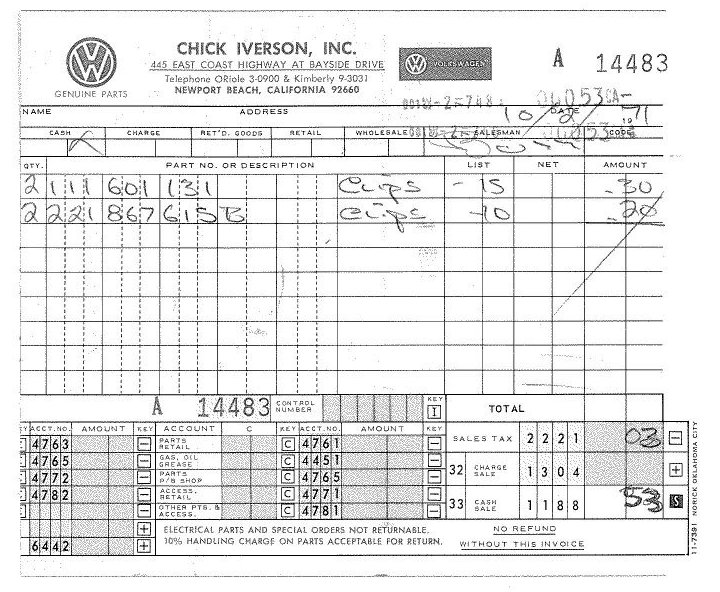 CHICK IVERSON, INC.
445 EAST COAST HIGHWAY AT BAYSIDE DRIVE
Telephone ORiole 3-0900 & Kimberly 9-3031
NEWPORT BEACH, CALIFORNIA 92660
GENUINE PARTS
VOLKSWAGEN
A 14483
NAME ADDRESS DATE 10/2/1971
CASH CHARGE RET'D. GOODS RETAIL WHOLESALE SALESMAN CODE
QTY. PART NO. OR DESCRIPTION LIST NET AMOUNT
2 111 601 131 Clips -15 .30
2 221 867 615B Clips -10 .20
A 14483 CONTROL NUMBER KEY I TOTAL
ACCT.NO. AMOUNT KEY ACCOUNT C KEY ACCT.NO. AMOUNT KEY
4763 — PARTS RETAIL C 4761 —
4765 — GAS, OIL GREASE C 4451 —
4772 — PARTS P/B SHOP C 4765 —
4782 — ACCESS. RETAIL C 4771 —
— OTHER PTS. & ACCESS. C 4781 —
SALES TAX 2221 03 —
32 CHARGE SALE 1304 +
33 CASH SALE 1188 53 S
+ ELECTRICAL PARTS AND SPECIAL ORDERS NOT RETURNABLE.
6442 + 10% HANDLING CHARGE ON PARTS ACCEPTABLE FOR RETURN.
NO REFUND
WITHOUT THIS INVOICE
11-7391 NORICK OKLAHOMA CITY